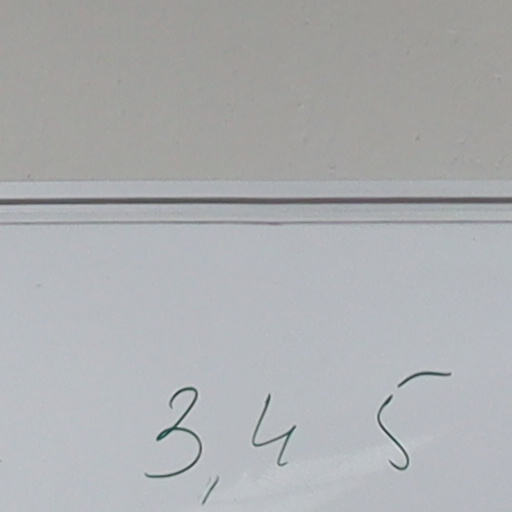 3,4 5